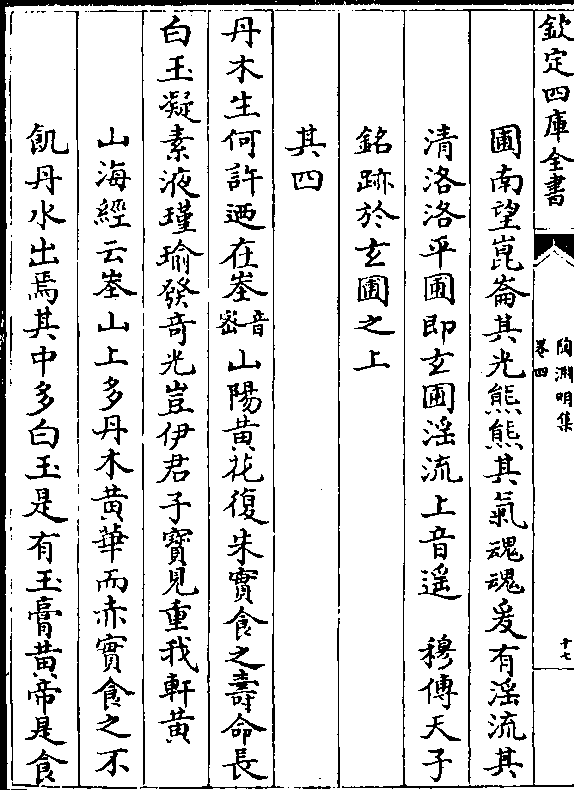 欽定四庫全書
陶淵明集
卷四
十七
圃南望崑崙其光熊熊其氣魂魂爰有淫流其
清洛洛平圃即玄圃淫流上音遥　穆傳天子
銘跡於玄圃之上
其四
丹木生何許迺在峚音密山陽黄花復朱實食之壽命長
白玉凝素液瑾瑜發竒光豈伊君子寳見重我軒黄
山海經云峚山上多丹木黄華而赤實食之不
飢丹水出焉其中多白玉是有玉膏黄帝是食